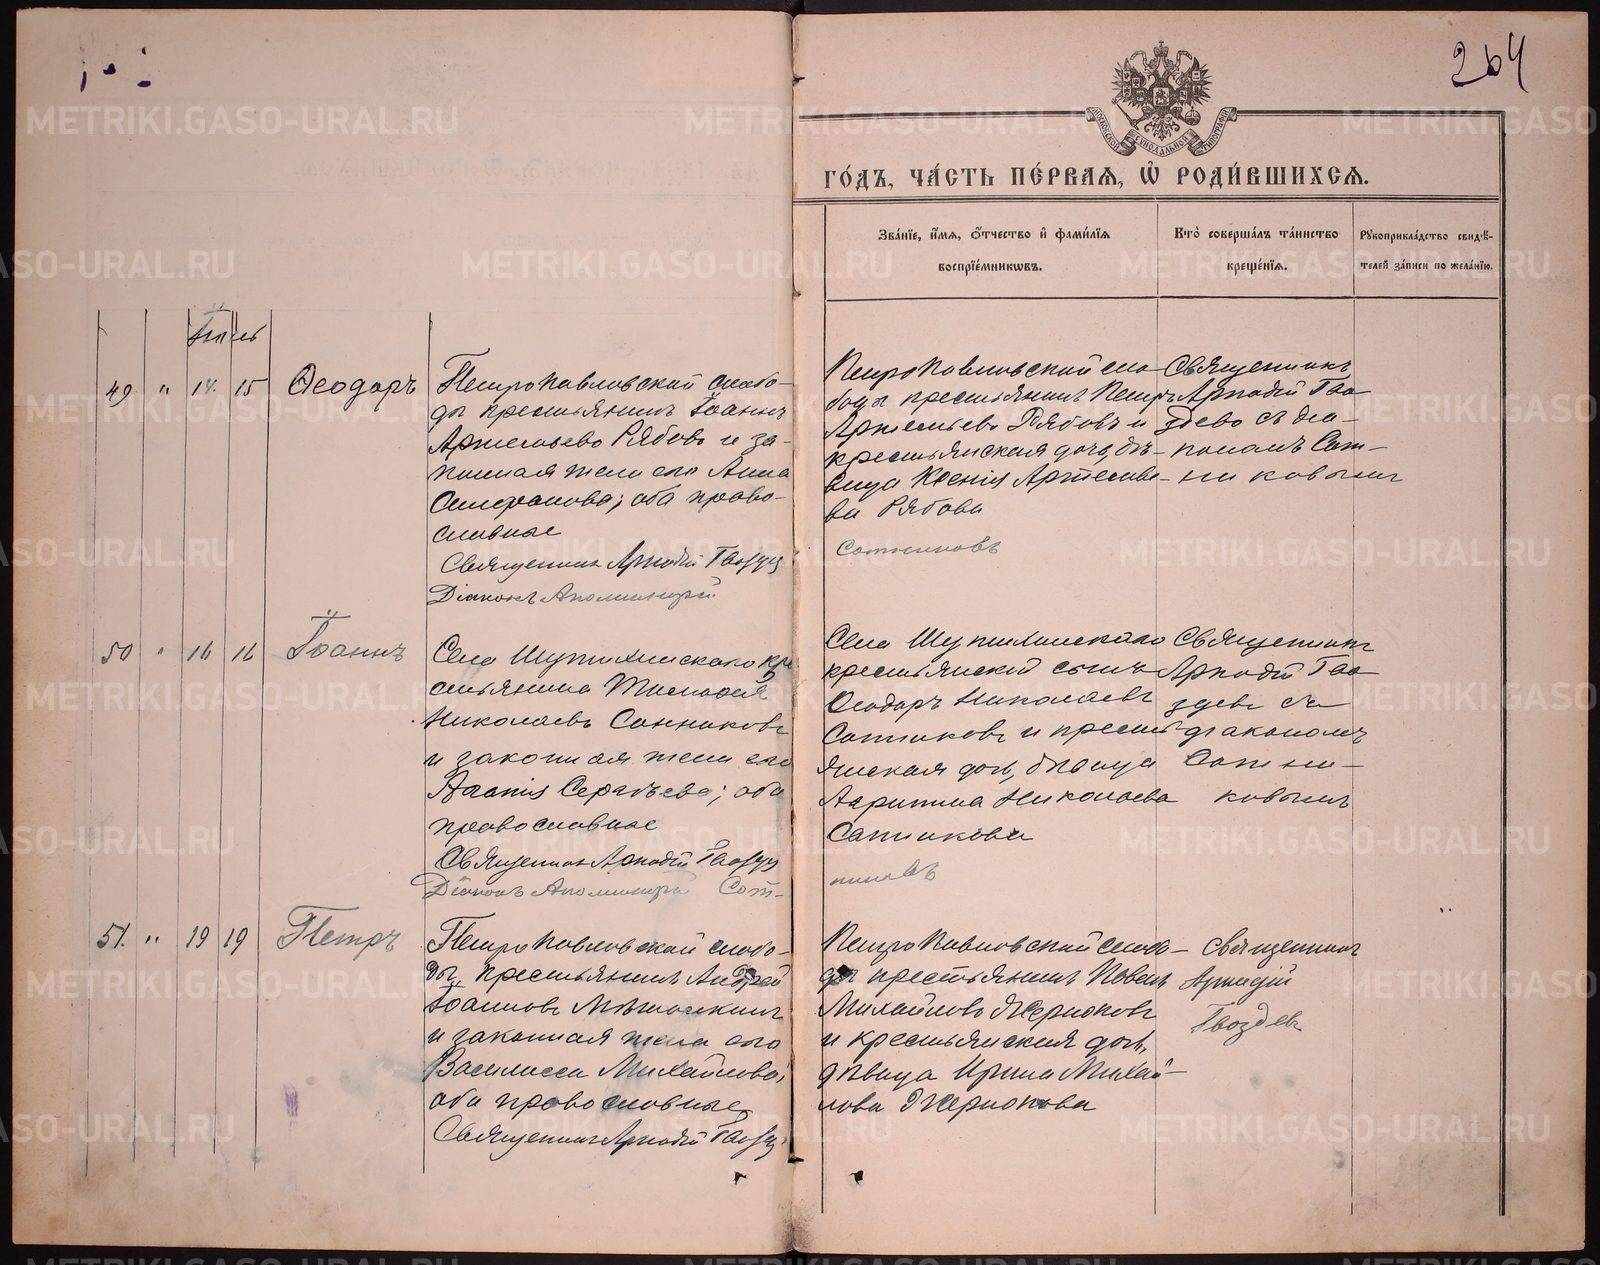 264
МОСКОВСКОЙ СѴНОДАЛЬНОЙ ТИПОГРАФІИ
ГО́ДЪ, ЧА́СТЬ ПЕ́РВАѦ, Ѡ҆ РОДИ́ВШИХСѦ.
Зва́нїе, и҆́мѧ, ѻ҆́тчество и҆ фами́лїѧ
воспрїе́мникѡвъ.
Кто̀ соверша́лъ та́инство
креще́нїѧ.
Рꙋкоприкла́дство свидѣ́-
телей за́писи по жела́нїю.
49 " 14. 15 Ѳеодоръ
Петропавловской слобо-
ды крестьянинъ Іоаннъ
Артемьевъ Рябовъ и за-
конная жена его Анна
православные
Священник Аркадій Гвоздев
Діаконъ Аполлинарій
Петропавловской сло-
боды крестьянинъ Петръ
Артемьевъ Рябовъ и
крестьянская дочь, дѣ-
вица Ксенія Артемье-
ва Рябова
Сотниковъ
Священникъ
Аркадій Гво
здевъ съ діа-
кономъ Сот-
никовымъ
50 " 16 16 Іоаннъ
Села Шутихинскаго кре
стьянинъ
Николаевъ Санников
и законная жена его
Сергѣева; оба
православные
Священник Аркадій Гвоздев
Діаконъ Аполлинарій Сот-
Села Шутихинскаго
крестьянскій сынъ
Ѳеодоръ Николаевъ
и кресть
янская дочь, дѣвица
Агрипина Николаева
никовъ
Священникъ
Аркадій Гво
здевъ съ
діакономъ
Сотни-
ковымъ
51. " 19 19 Петръ
Петропавловской слобо-
ды, крестьянинъ Андрей
Іоанновъ
и законная жена его
Василисса Михайлова;
оба православные
Священник Аркадій Гвозд
Петропавловской слобо-
ды крестьянинъ Павелъ
Михайловъ
и крестьянская дочь,
дѣвица Ирина Михай-
лова
Священник
Аркадій
Гвоздевъ
METRIKI.GASO-URAL.RU